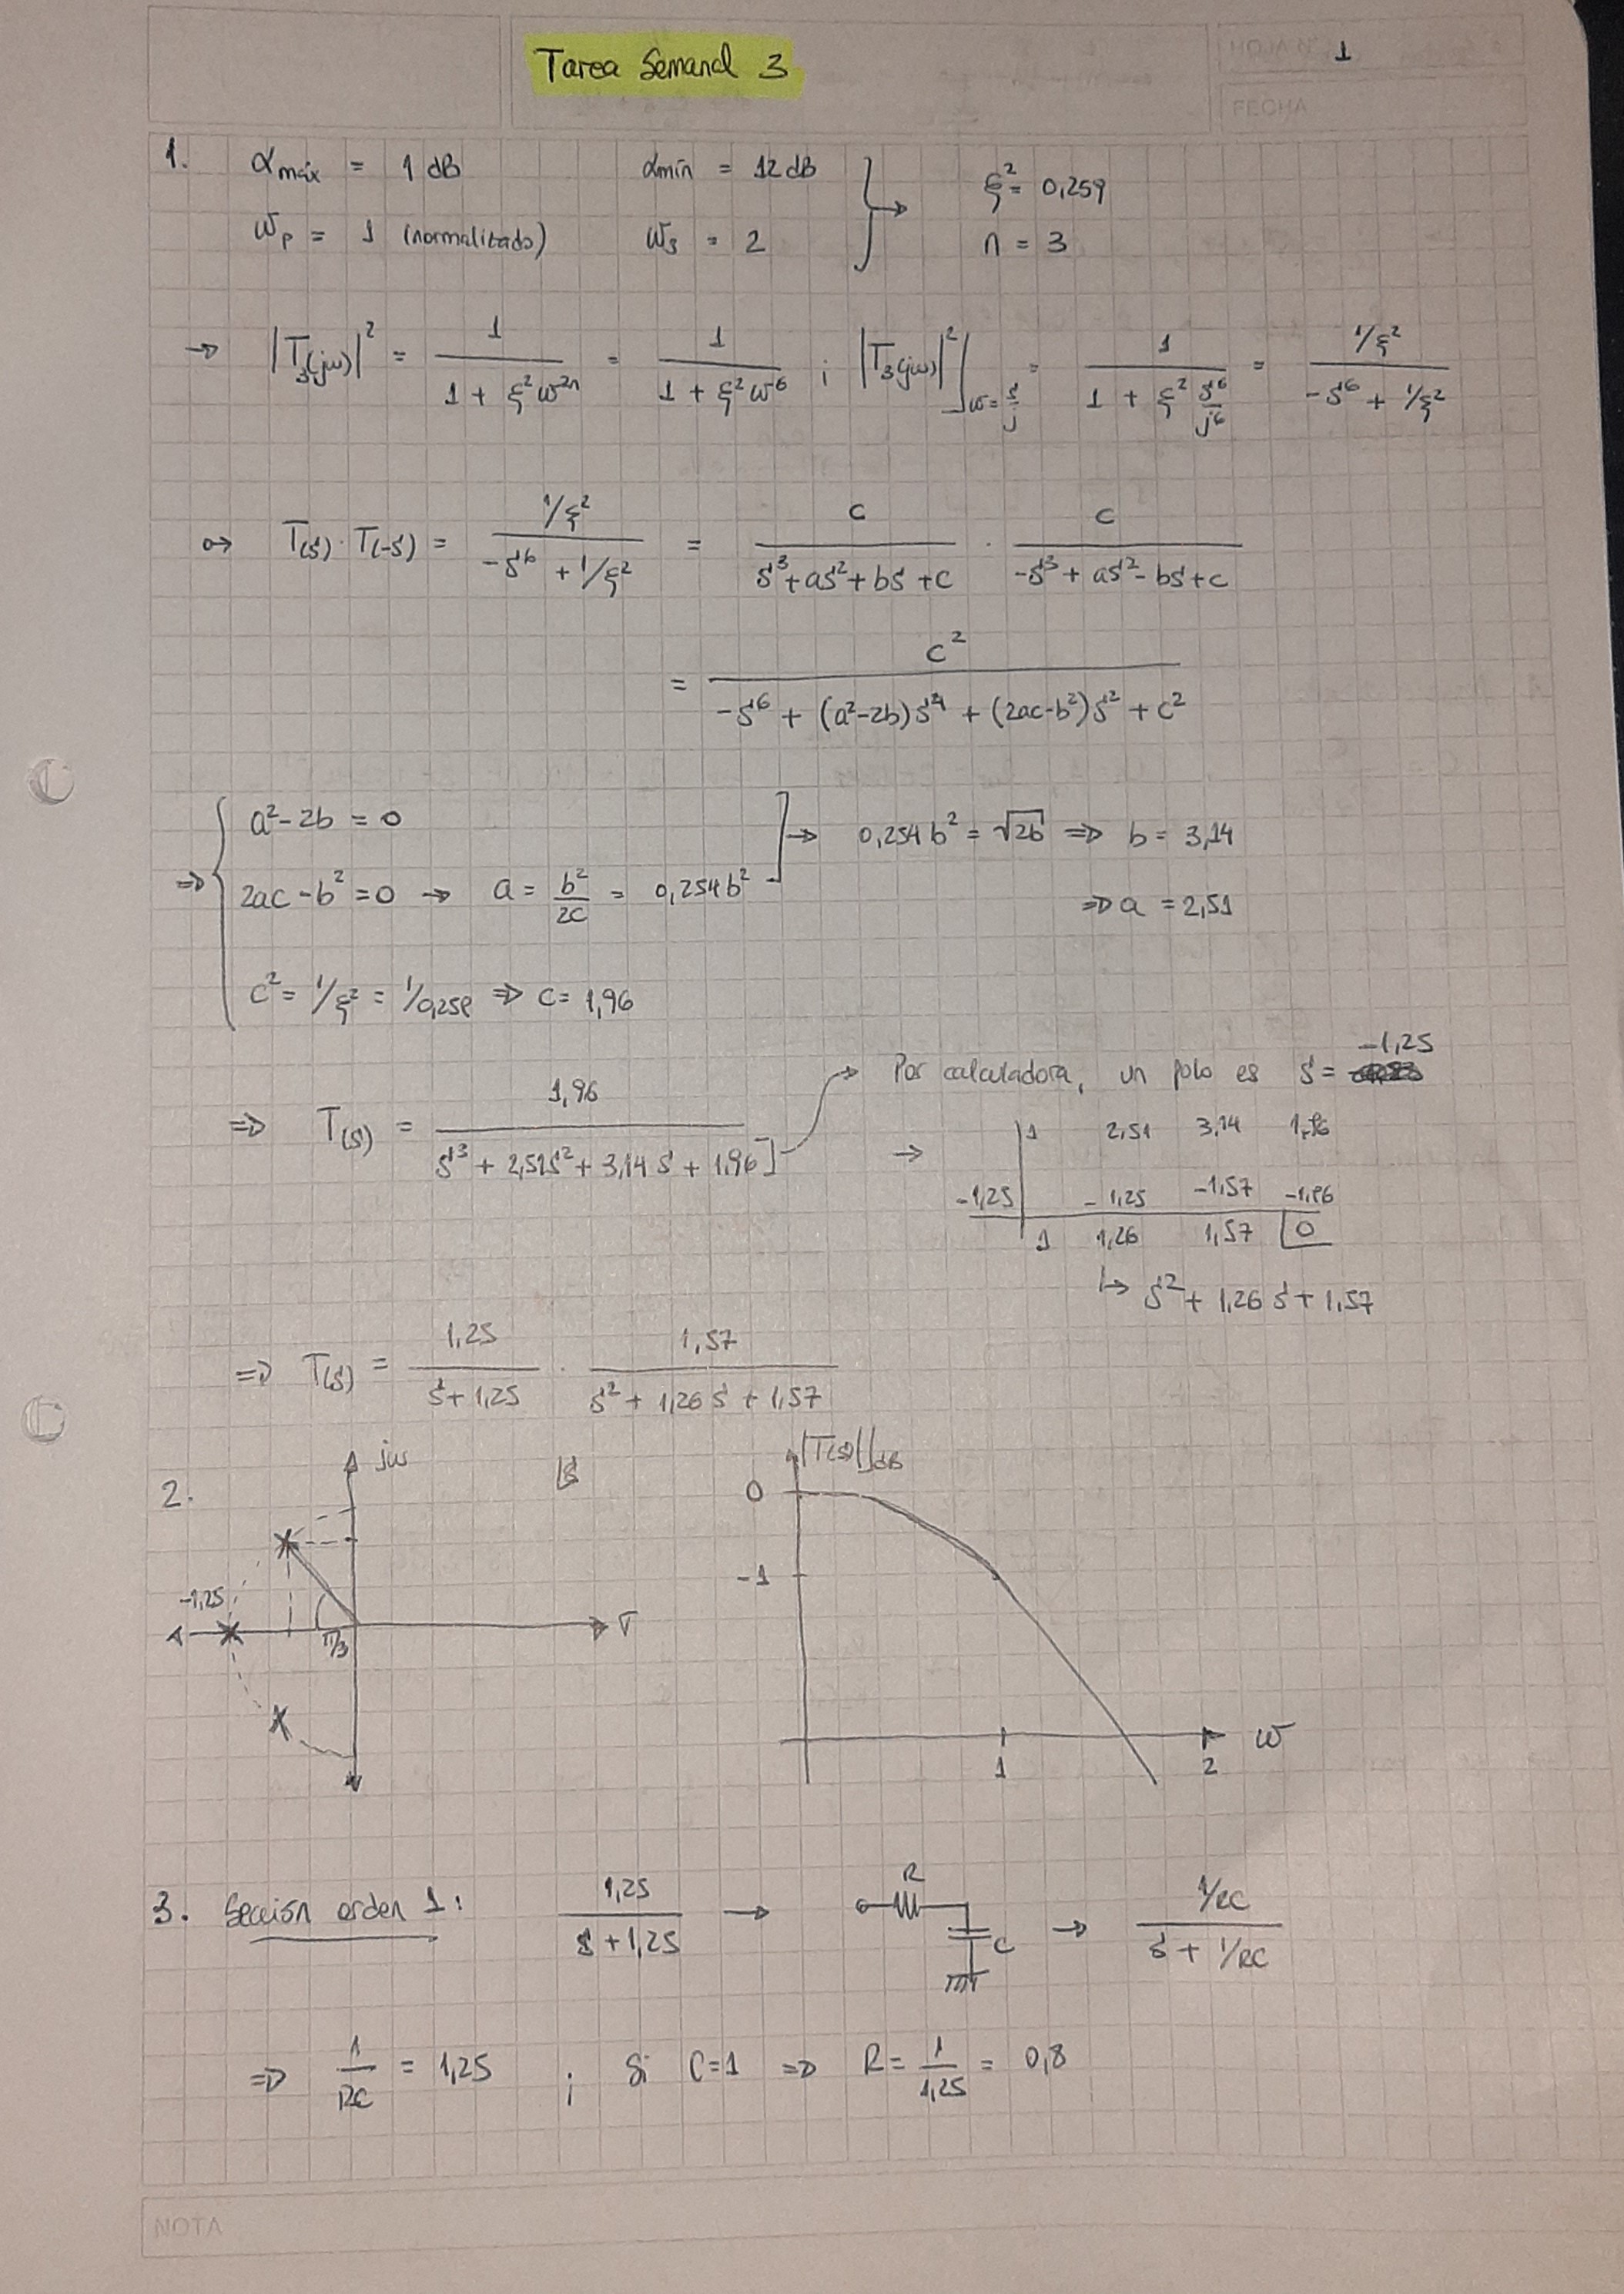 Tarea Semanal 3
HOJA Nº 1
FECHA
1. αmáx = 1 dB αmín = 12 dB } → ξ² = 0,259
ωp = 1 (normalizado) ωs = 2 n = 3
→ |T₃(jω)|² = 1 / (1 + ξ²ω²ⁿ) = 1 / (1 + ξ²ω⁶) ; |T₃(jω)|² |ω=s/j = 1 / (1 + ξ² s⁶/j⁶) = 1/ξ² / (-s⁶ + 1/ξ²)
→ T(s) · T(-s) = 1/ξ² / (-s⁶ + 1/ξ²) = c / (s³ + as² + bs + c) · c / (-s³ + as² - bs + c)
= c² / (-s⁶ + (a²-2b)s⁴ + (2ac-b²)s² + c²)
⇒ { a² - 2b = 0
2ac - b² = 0 → a = b²/2c = 0,254b² ] → 0,254b² = √2b ⇒ b = 3,14
⇒ a = 2,51
c² = 1/ξ² = 1/0,259 ⇒ c = 1,96
⇒ T(s) = 1,96 / (s³ + 2,51s² + 3,14s + 1,96) → Por calculadora, un polo es s = -1,25
→ 1 2,51 3,14 1,96
-1,25 -1,25 -1,57 -1,96
1 1,26 1,57 0
↳ s² + 1,26s + 1,57
⇒ T(s) = 1,25 / (s + 1,25) · 1,57 / (s² + 1,26s + 1,57)
2. jω
s
-1,25
π/3
σ
|T(s)|dB
0
-1
1
2
ω
3. Sección orden 1: 1,25 / (s + 1,25) → R C → 1/RC / (s + 1/RC)
⇒ 1/RC = 1,25 ; Si C=1 ⇒ R = 1/1,25 = 0,8
NOTA